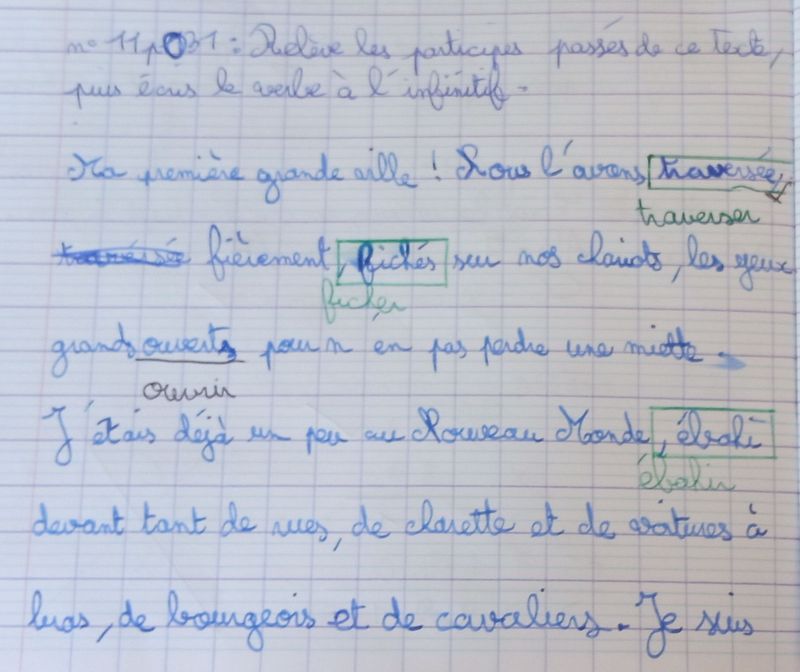 n° 11 p 031 : Relève les participes passés de ce texte,
puis écris le verbe à l'infinitif.
Ma première grande ville ! Nous l'avons traversée,
traverser
fièrement, fichés sur nos chariots, les yeux
ficher
grands ouverts pour n'en pas perdre une miette.
ouvrir
J'étais déjà un peu au Nouveau Monde, ébahi
ébahir
devant tant de rues, de charette et de voitures à
bras, de bourgeois et de cavaliers. Je suis